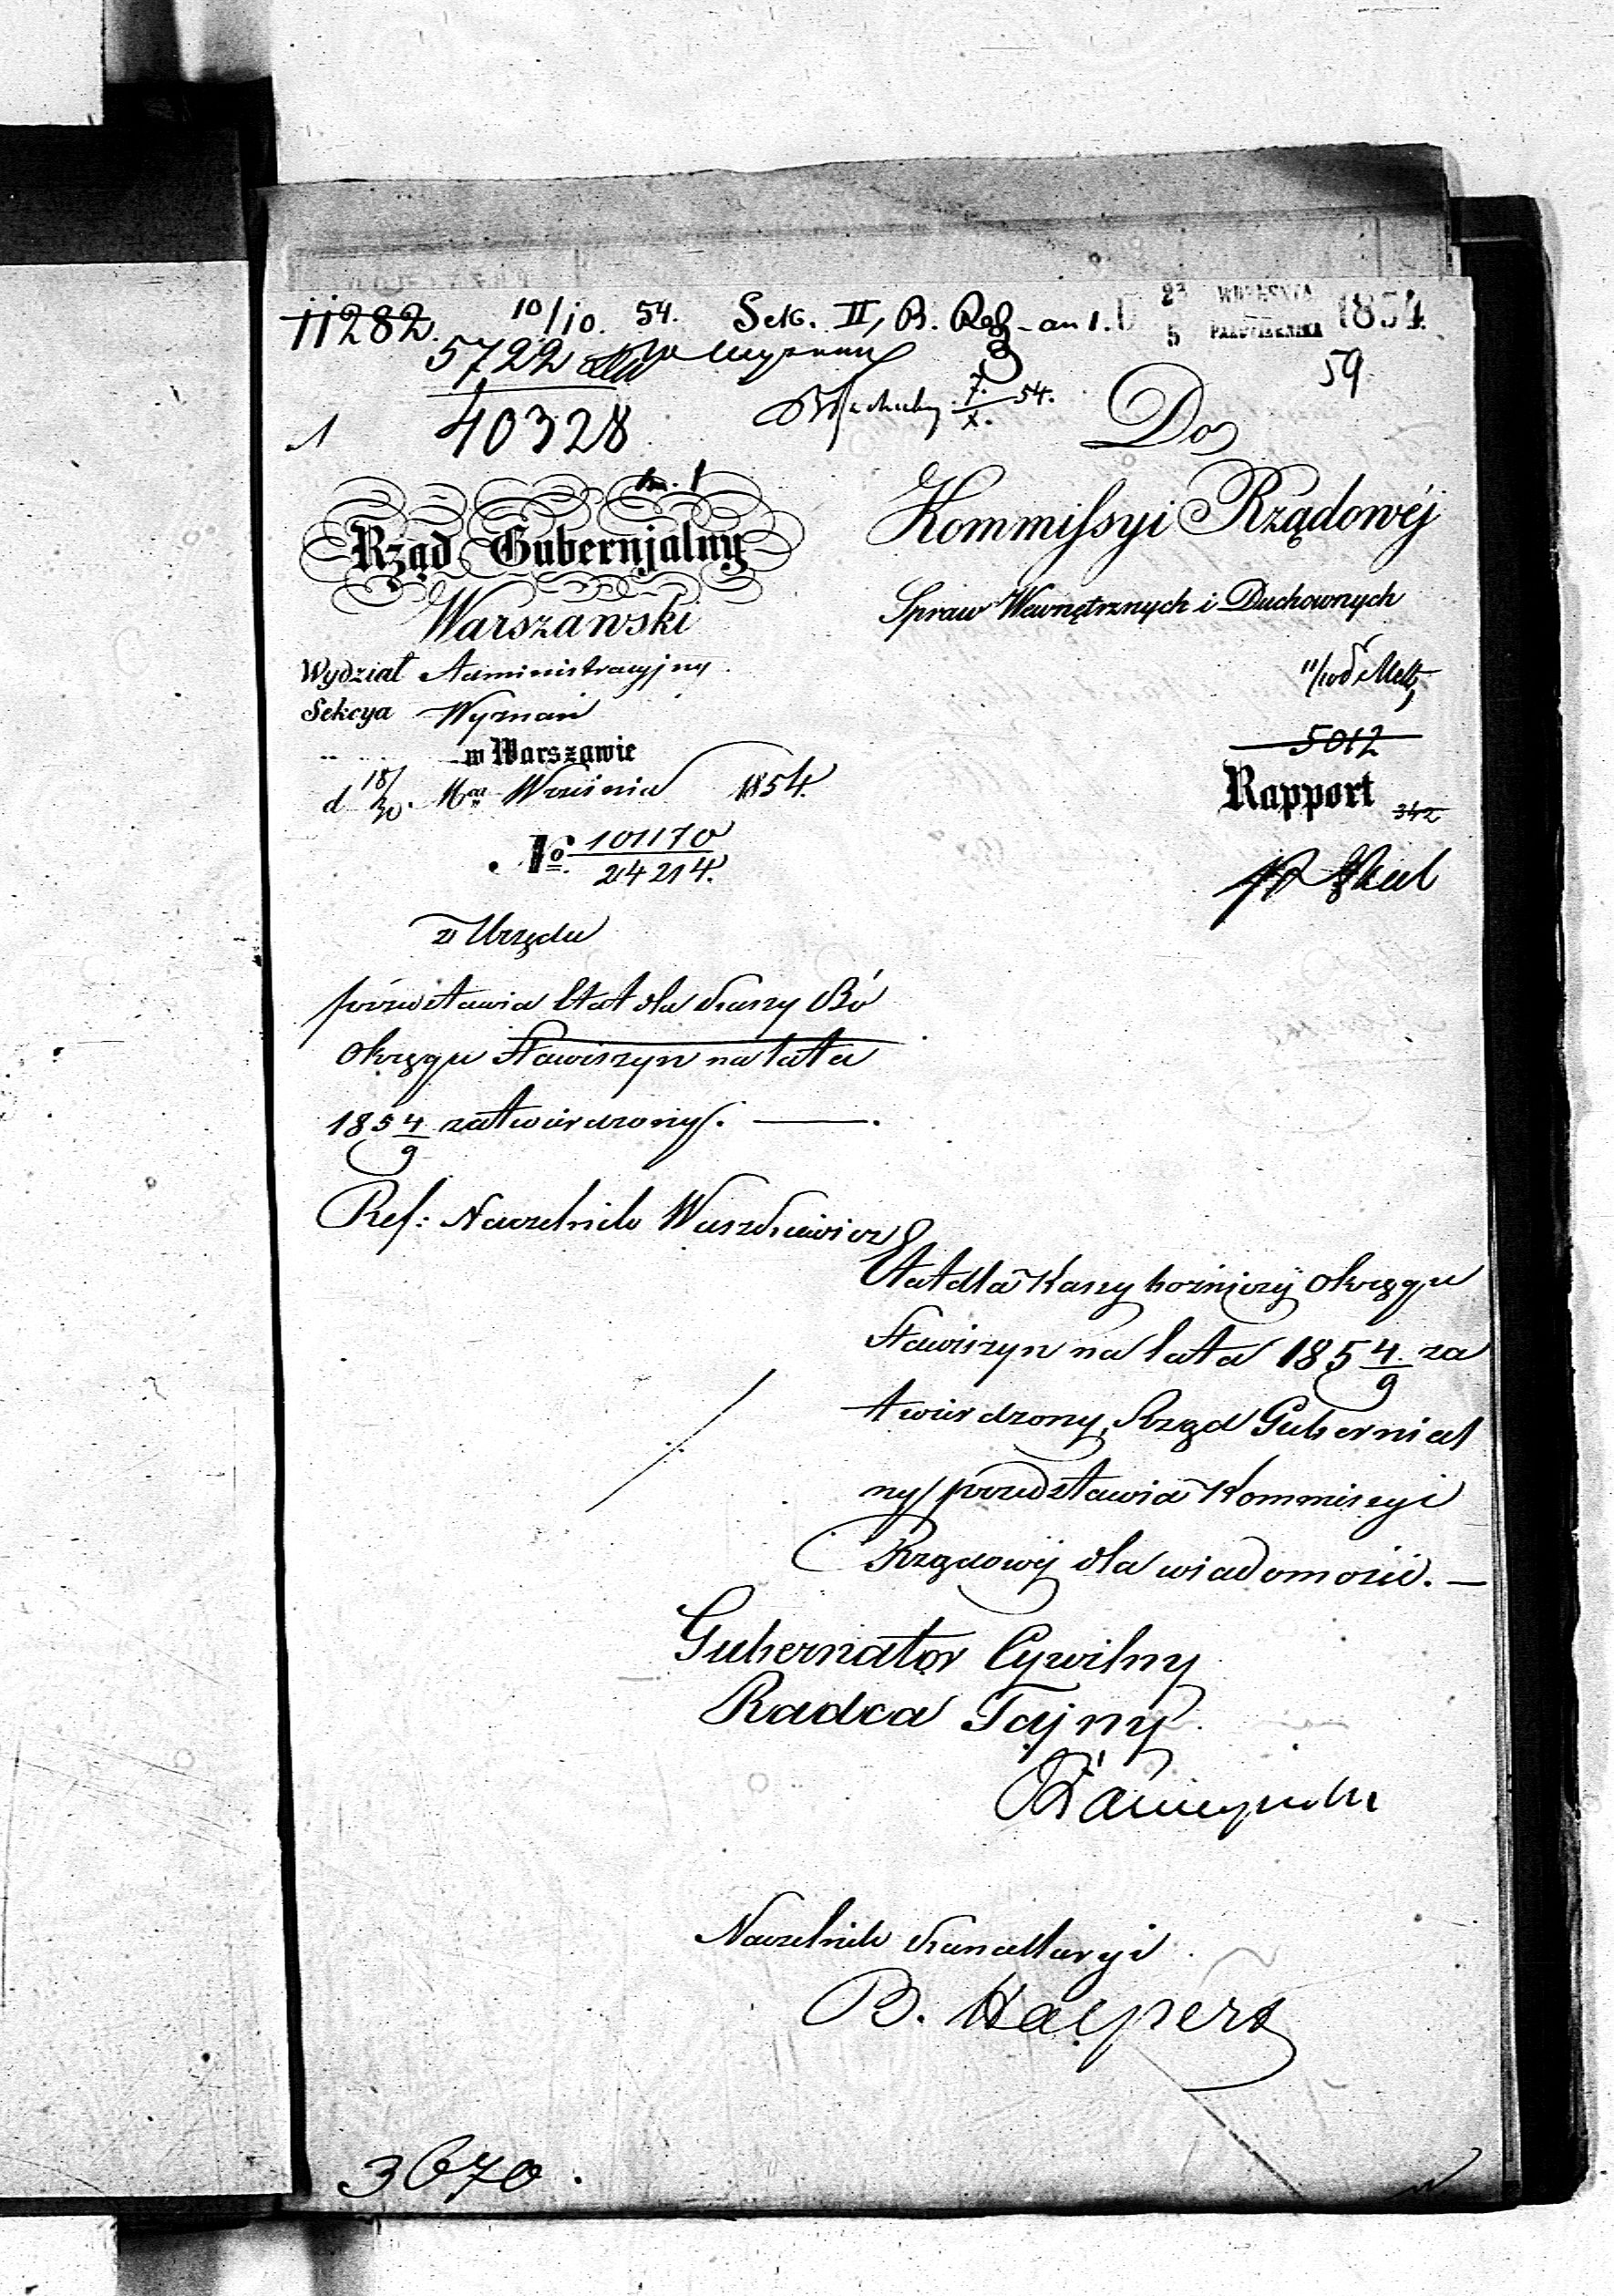 11282. 10/10. 54. Sek. II, B. 23 WRZEŚNIA 1854
5 PAŹDZIERNIKA
5722
59
7/X. 54.
1 40328
Do
Kommissyi Rządowéj
Rząd Gubernjalny
Spraw Wewnętrznych i Duchownych
Warszawski
Wydział Administracyjny
Sekcya Wyznań
w Warszawie
5012
d 18/30. Września 1854.
Rapport 342
No. 101170/24214.
z Urzędu
przedstawia Etat dla Kassy Bó
Okręgu Stawiszyn na lata
1854/9 zatwierdzony. —.
Ref: Naczelnik Waszkiewicz
Etat dla Kassy bóżniczej Okręgu
Stawiszyn na lata 1854/9 za
twierdzony, Rząd Gubernial
ny przedstawia Kommissyi
Rządowéj dla wiadomości. —
Gubernator Cywilny
Radca Tajny
Naczelnik Kancellaryi
B. Halpert
3670.